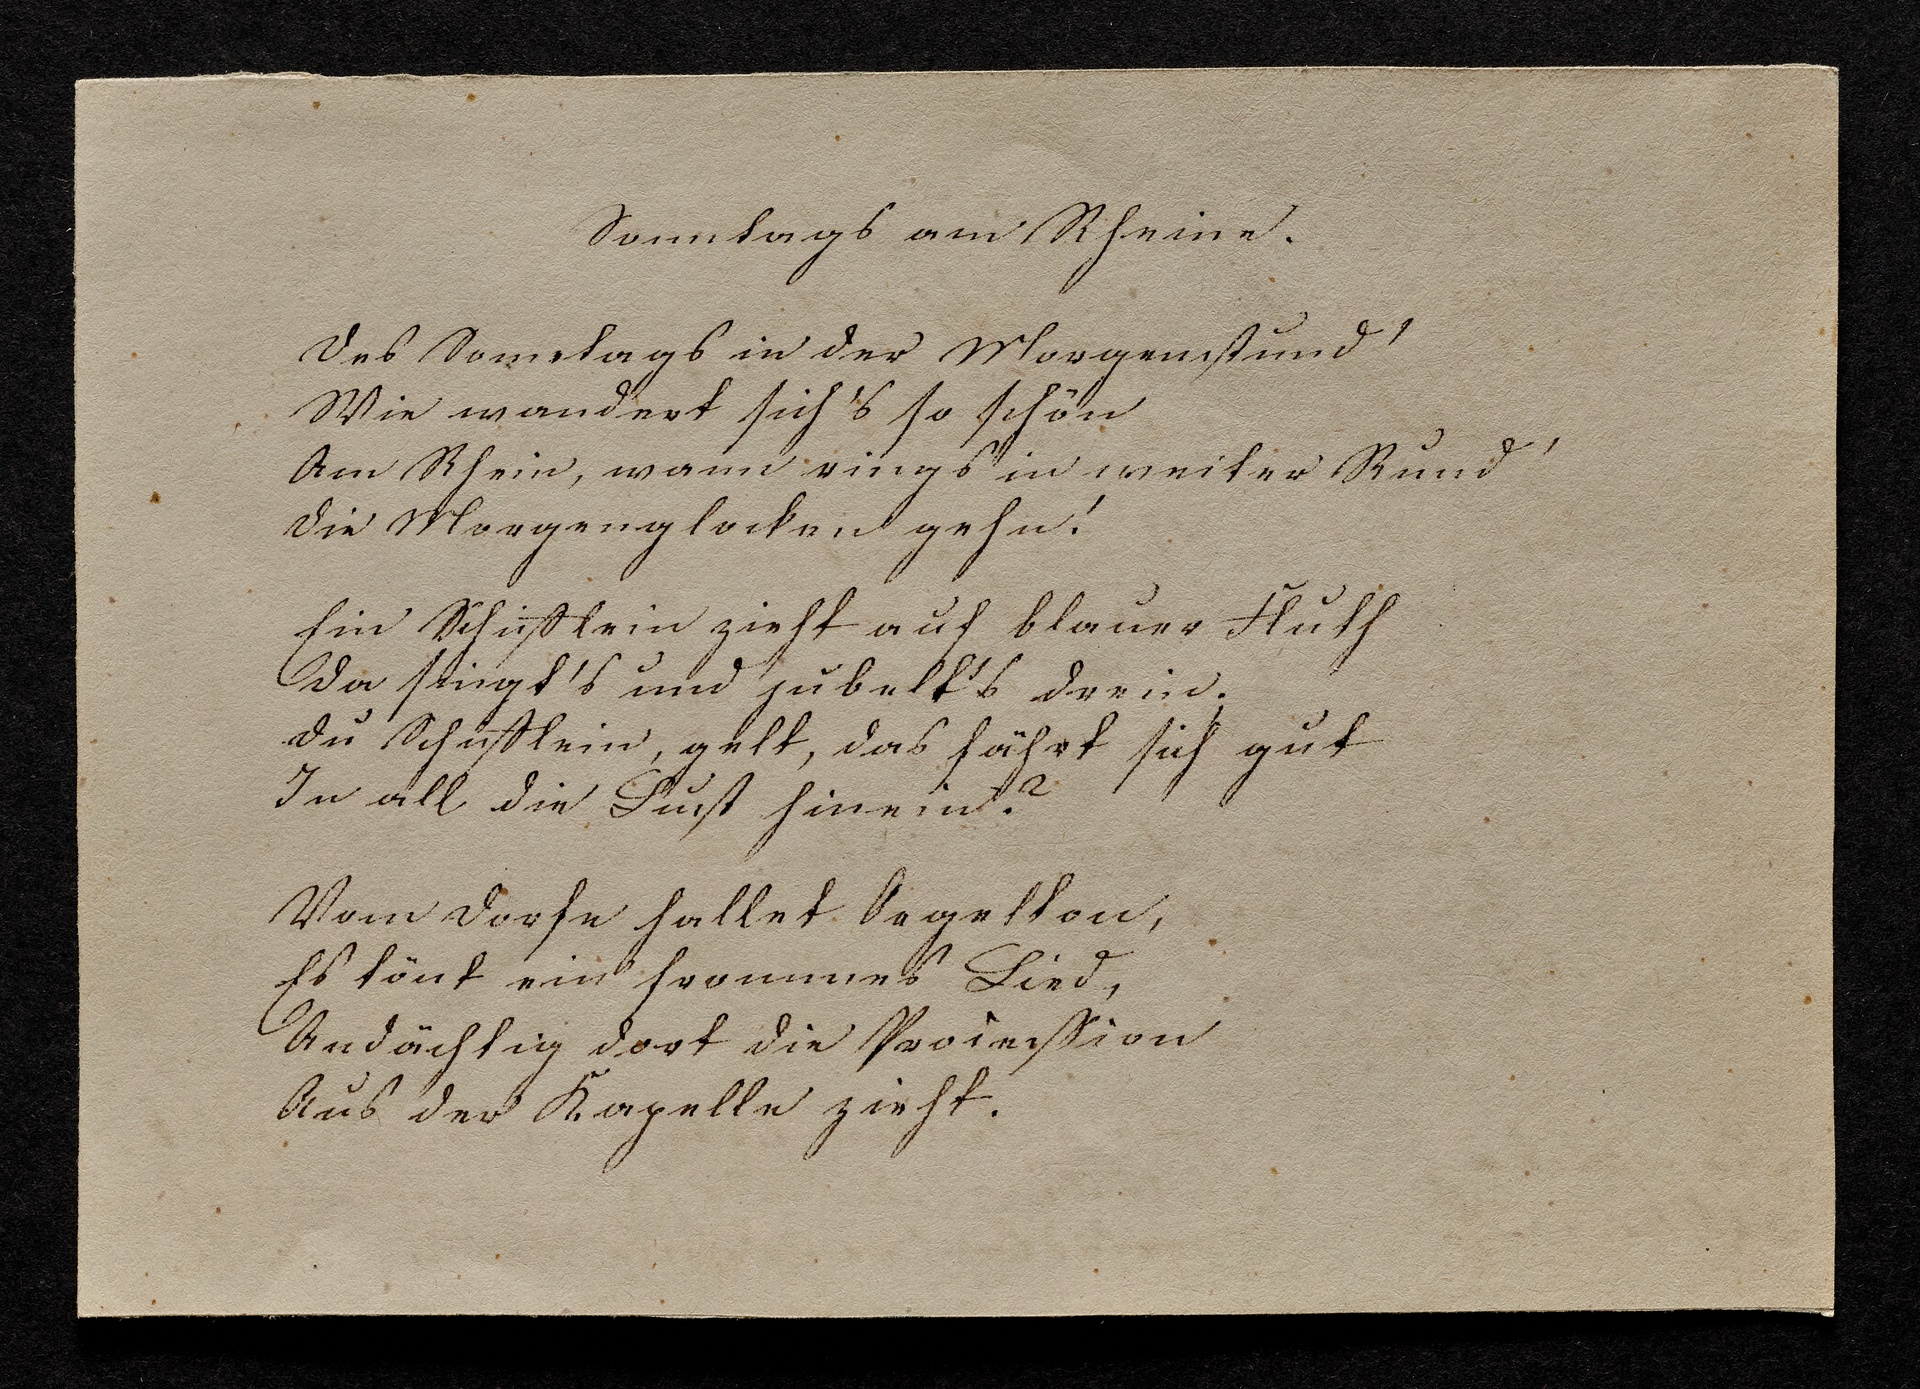 Sonntags am Rheine.
Des Sonntags in der Morgenstund'
Wie wandert sich's so schön
Am Rhein, wann rings in weiter Rund'
Die Morgenglocken gehn!
Ein Schifflein zieht auf blauer Fluth
Da singt's und jubelt's drein.
Du Schifflein, gelt, das fährt sich gut
In all die Lust hinein?
Vom Dorfe hallet Orgelton,
Es tönt ein frommes Lied,
Andächtig dort die Procession
Aus der Kapelle zieht.